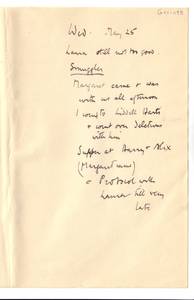 Wed. May 25
Laura still not too good
Smuggler
Margaret came & was
with us all afternoon
I went to Liddell Harts
& went over Deletions
with him
Supper at Harry & Alix
(Margaret came)
& Protocol with
Laura till very
late